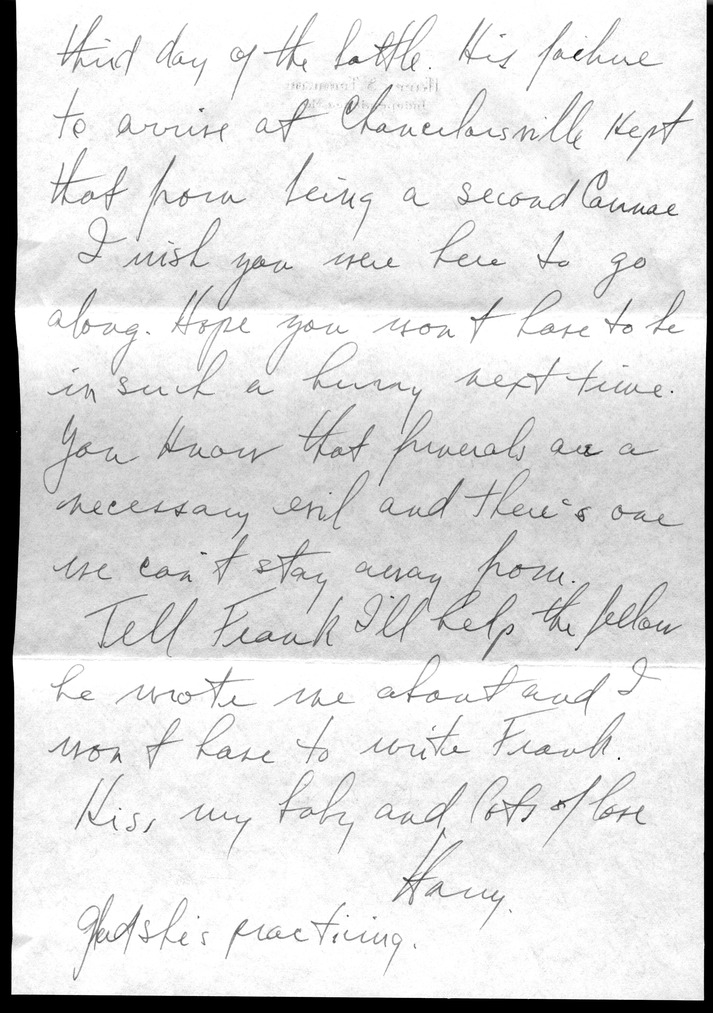 third day of the battle. His failure
to arrive at Chancelorsville kept
that from being a second Cannae
I wish you were here to go
along. Hope you won't have to be
in such a hurry next time.
You know that funerals are a
necessary evil and there's one
we can't stay away from.
Tell Frank I'll help the fellow
he wrote me about and I
won't have to write Frank.
Kiss my baby and lots of love
Harry.
glad she's practicing.